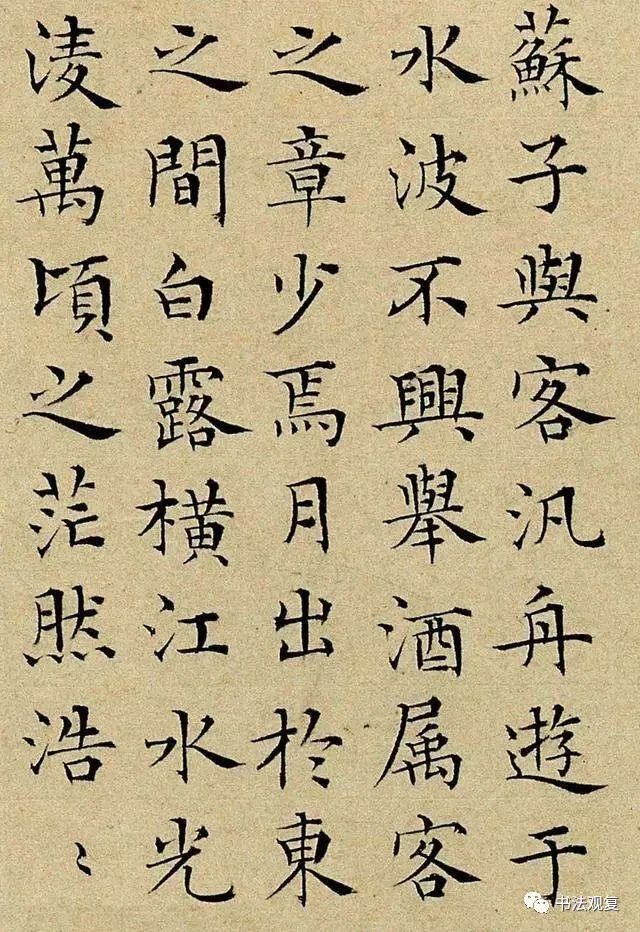 蘇子與客汎舟遊于
水波不興舉酒属客
之章少焉月出於東
之間白露橫江水光
淩萬頃之茫然浩〻
书法观复